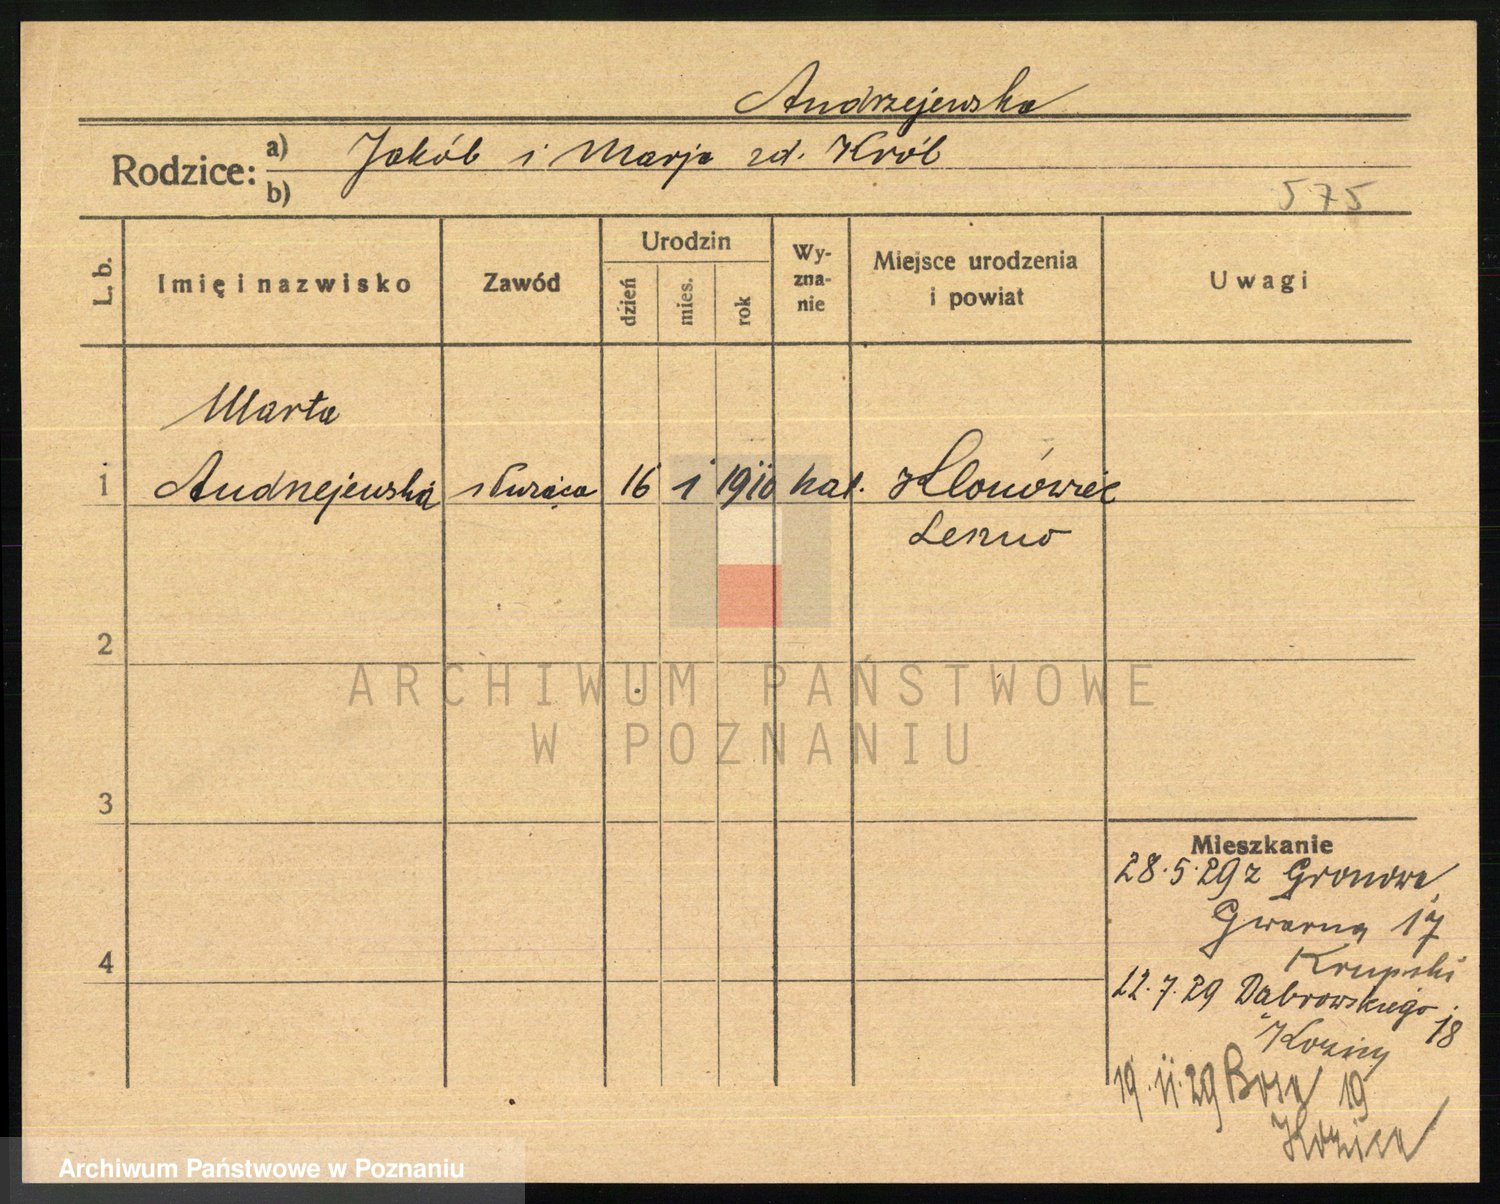 Andrzejewska
Rodzice: a) Jakób i Marja zd. Król
b)
575
L. b.
Imię i nazwisko
Zawód
Urodzin
dzień
mies.
rok
Wy-
zna-
nie
Miejsce urodzenia
i powiat
Uwagi
Marta
1 Andrzejewska służąca 16 1 1910 kat. Klonówiec
Leszno
2
ARCHIWUM PAŃSTWOWE
W POZNANIU
3
Mieszkanie
28.5.29 z Gronowa
Gwarna 17
4
Krupski
22.7.29 Dąbrowskiego
18
19.11.29 19
Archiwum Państwowe w Poznaniu